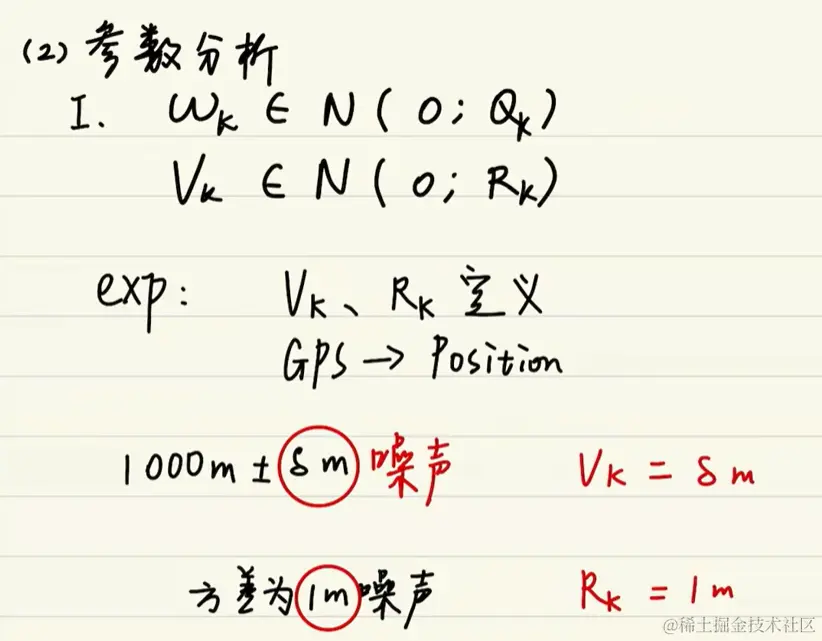 (2) 参数分析
I. Wk ∈ N ( 0 ; Qk )
Vk ∈ N ( 0 ; Rk )
exp: Vk、Rk 定义
GPS → Position
1000m ± δm 噪声 Vk = δm
方差为 1m 噪声 Rk = 1m
@稀土掘金技术社区